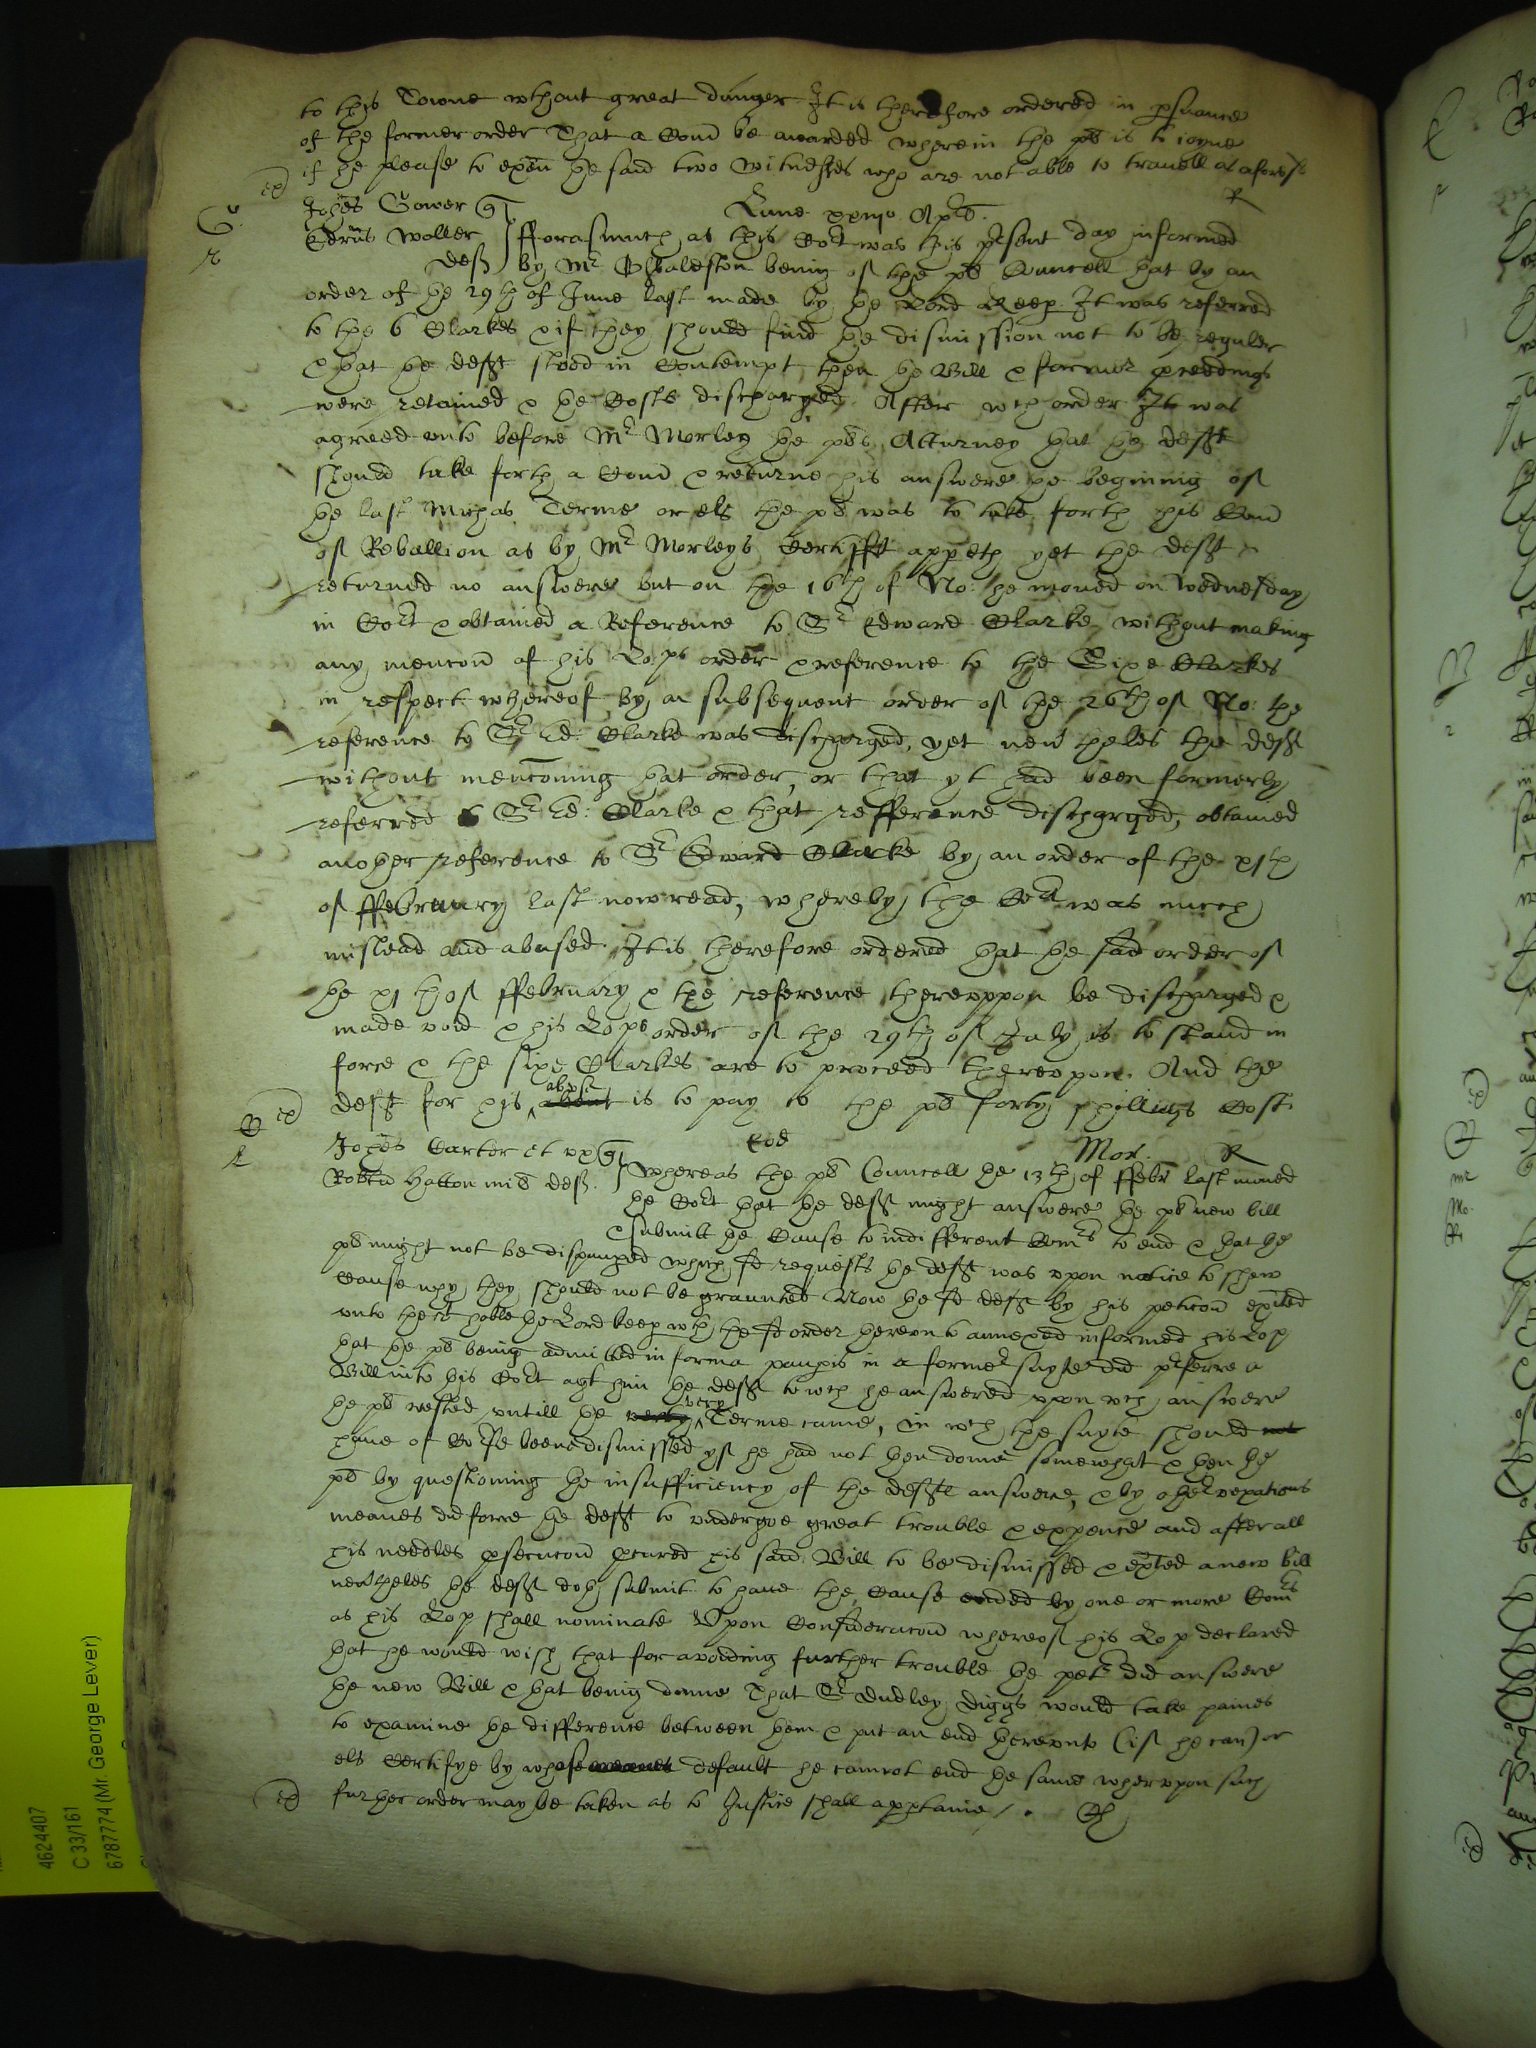 to this Towne wthout great danger It is therefore ordered in psuance
of the former order That a Comn be awarded wherein the plt is to ioyne
if he please to exen the said two Witnesses who are not able to travell as aforesd
ex
R
G
r
Johes Gower q
Lune xxiiio Aprs
Edrus Waller deft
fforasmuch as this Cort was this prsent day informed
by Mr Osbaldeston being of the plts Councell that by an
order of the 29th of June last made by the Lord Keep It was referred
to the 6 Clarkes & if they should find the dismission not to be reguler
& that the deft stood in Contempt then the Bill & former pceedings
were retained & the Costs discharged After wch order It was
agreed unto before Mr Morley the plts Atturney that the deft
should take forth a Comn & returne his answere the beginning of
the last Michas Terme or els the plt was to take forth his Comn
of Rebellion as by Mr Morleys Certifft appeth yet the deft
returned no answere but on the 16th of No: he moved on Wednesday
in Cort & obtained a Reference to Sr Edward Clarke without making
any mencon of his Lops order & reference to the Sixe Clarkes
in respect whereof by a subsequent order of the 26th of No: the
reference to Sr Ed: Clarke was discharged, yet nevtheles the deft
without menconing that order, or that yt had been formerly
referred to Sr Ed: Clarke & that refference discharged, obtained
another reference to Sr Edward Clarke by an order of the xith
of ffebruary last now read, whereby the Cort was much
mislead and abused It is therefore ordered that the said order of
the xith of ffebruary & the reference thereuppon be discharged &
made void & his Lops order of the 29th of July is to stand in
force & the sixe Clarkes are to proceed thereupon. And the
deft for his abuse is to pay to the plt forty shillings Costs
ex
C
Johes Carter et ux q
Eod
Mor. R
Robtu Hatton mil deft
Whereas the plts Councell the 13th of ffebr last moved
the Cort that the deft might answere the plts new bill
& submitt the Cause to indifferent Comrs to end & that the
plt might not be dispaupd which sd requests the deft was upon notice to shew
Cause why they should not be graunted Now the sd deft by his peticon exited
unto the rt hoble the Lord keep wth the sd order hereunto annexed informed his Lop
that the plt being admitted in forma paupis in a former suyte did prferre a
Bill into this Cort agt him the deft to wch he answered upon wch answere
the plt rested untill the very Terme came, in wch the suyte should
have of Corse beene dismissed yf he had not then donne somewhat & then the
plt by questioning the insufficiency of the defts answere, & by other vexatious
meanes did force the deft to undergoe great trouble & expence and after all
this needles psecucon pcured his said Bill to be dismissed & exited a new bill
nevtheles the deft doth submit to have the Cause ended by one or more Comrs
as his Lop shall nominate Upon Consideracon whereof his Lop declared
that he would wish that for avoiding further trouble the petr did answere
the new Bill & that being donne That Sr Dudley Diggs would take paines
to examine the difference between them & put an end thereunto (if he can) or
els Certifye by whose default he cannot end the same wherupon such
further order may be taken as to Justice shall apptaine /.
ex
4624407
C 33/161
6787774 (Mr. George Lever)